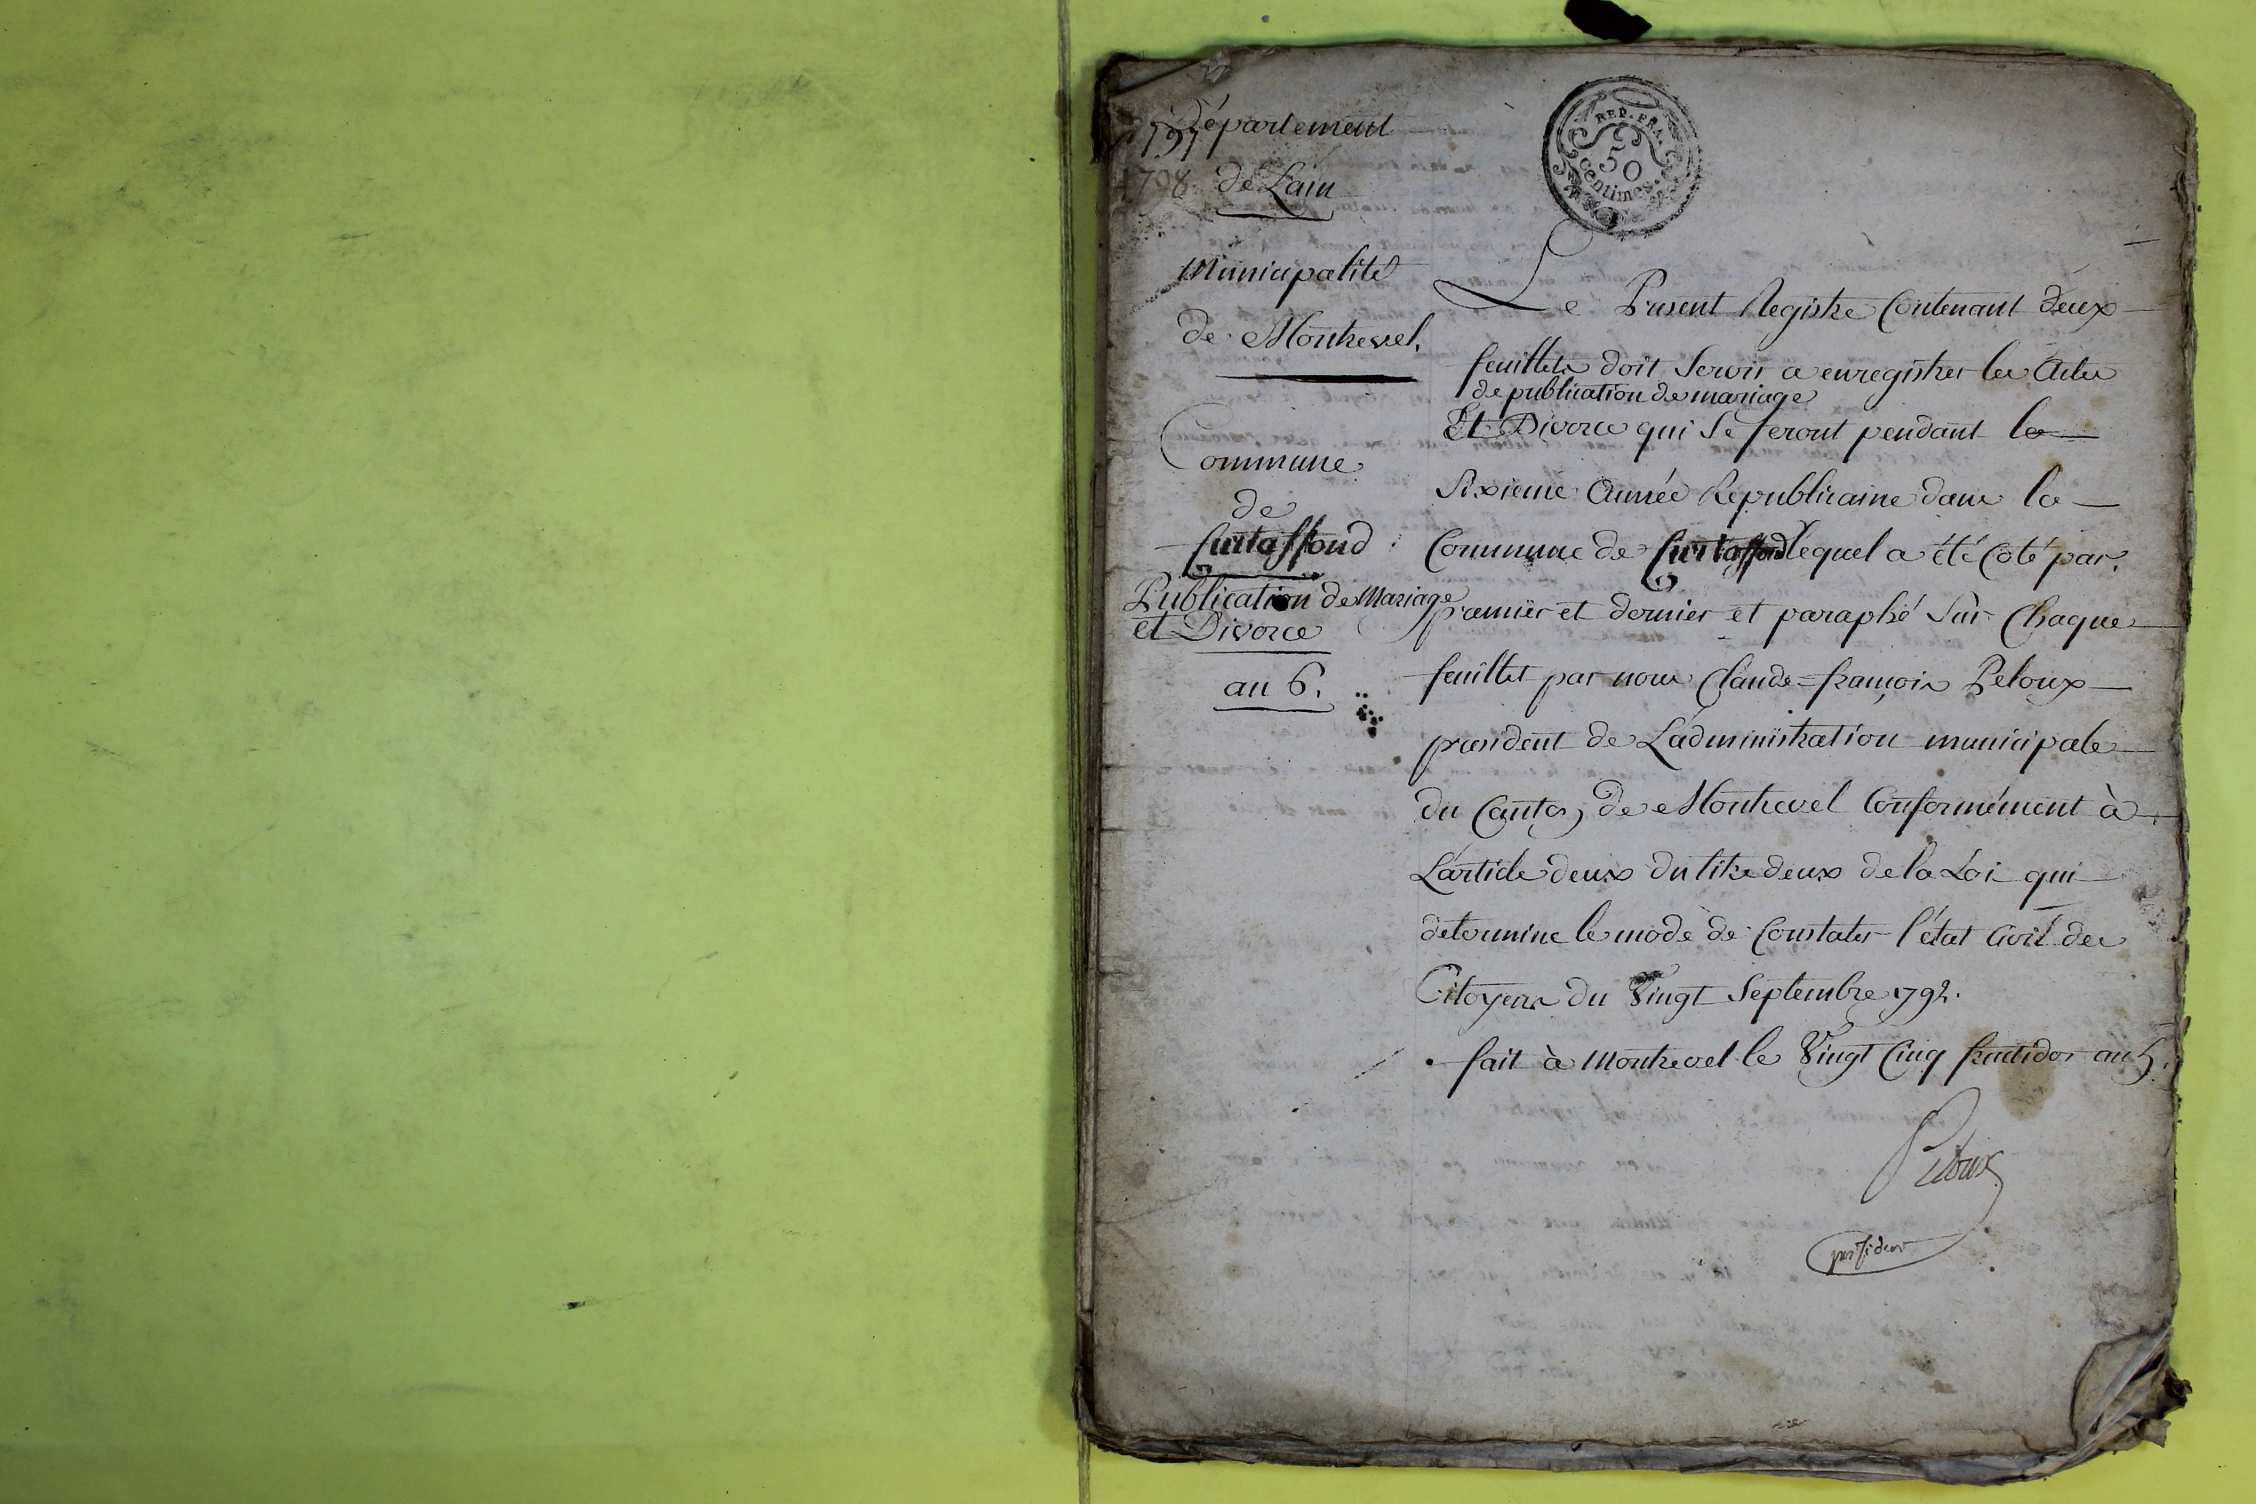 Département
1797
1798
de Lain
Municipalité
de Montrevel.
Commune
de
Curtaffond
Publication de Mariage
et Divorce
an 6.
REP. FRA.
50
centimes.
Le Présent Registre Contenant deux
feuillets doit Servir a enregistrer les Actes
de publication de mariage
Et Divorce qui Se feront pendant la
Sixieme Année Republicaine dans la
Commune de Curtaffond lequel a été Coté par
premier et dernier et paraphé Sur Chaque
feuillet par nous Claude=françois Peloux
president de L'administration municipale
du Canton de Montrevel Conformément à
L'article deux du titre deux de la Loi qui
determine le mode de Constater l'état Civil des
Citoyens du Vingt Septembre 1792.
fait à Montrevel le Vingt Cinq fructidor an 5.
Peloux
president